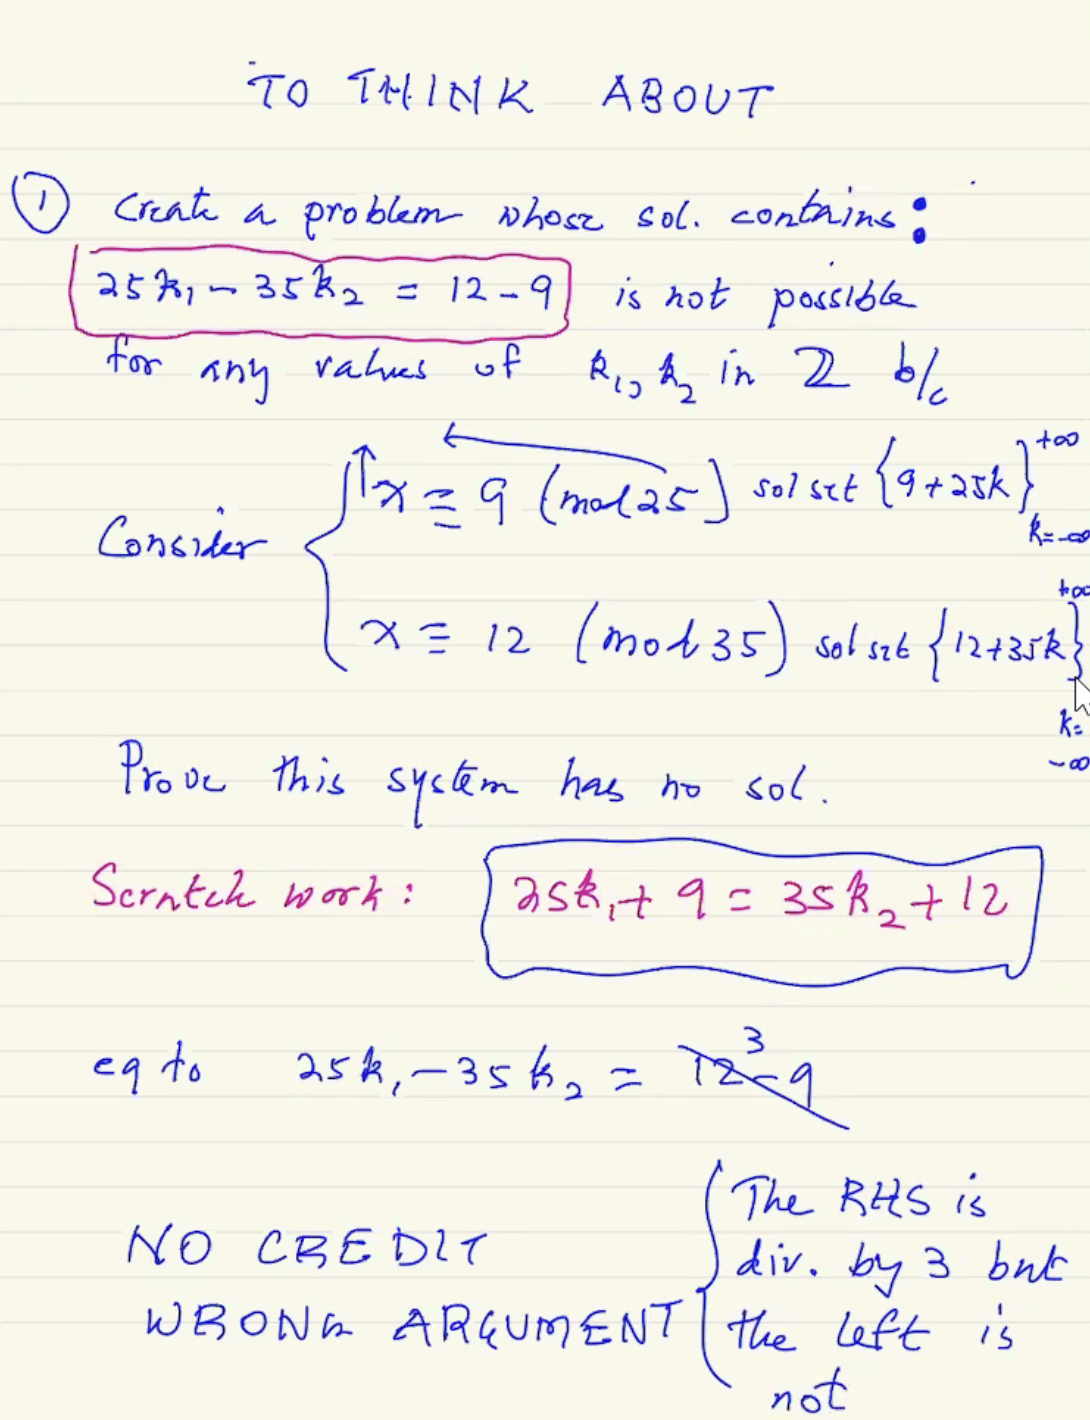 TO THINK ABOUT
① Create a problem whose sol. contains:
25k₁ - 35k₂ = 12 - 9 is not possible
for any values of k₁, k₂ in ℤ b/c
Consider { x ≡ 9 (mod 25) sol set {9+25k}^{+∞}_{k=-∞}
x ≡ 12 (mod 35) sol set {12+35k}^{+∞}_{k=-∞}
Prove this system has no sol.
Scratch work: 25k₁ + 9 = 35k₂ + 12
eq to 25k₁ - 35k₂ = 12-9 3
NO CREDIT
WRONG ARGUMENT
{ The RHS is
div. by 3 but
the left is
not